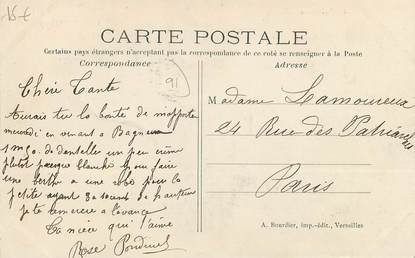 15 €
CARTE POSTALE
Certains pays étrangers n'acceptant pas la correspondance de ce côté se renseigner à la Poste
Correspondance
Adresse
91
Chère Tante
Aurais tu la bonté de m'apporter
mercredi en venant à Bagneux
1 m 50 de dentelle un peu crème
plutôt que blanche pour faire
une berthe a une robe pour la
petite ayant 30 de hauteur
je te remercie a l'avance
Ta nièce qui t'aime
Rose
Madame Lamoureux
24 Rue des Patriarches
Paris
A. Bourdier, imp.-édit., Versailles